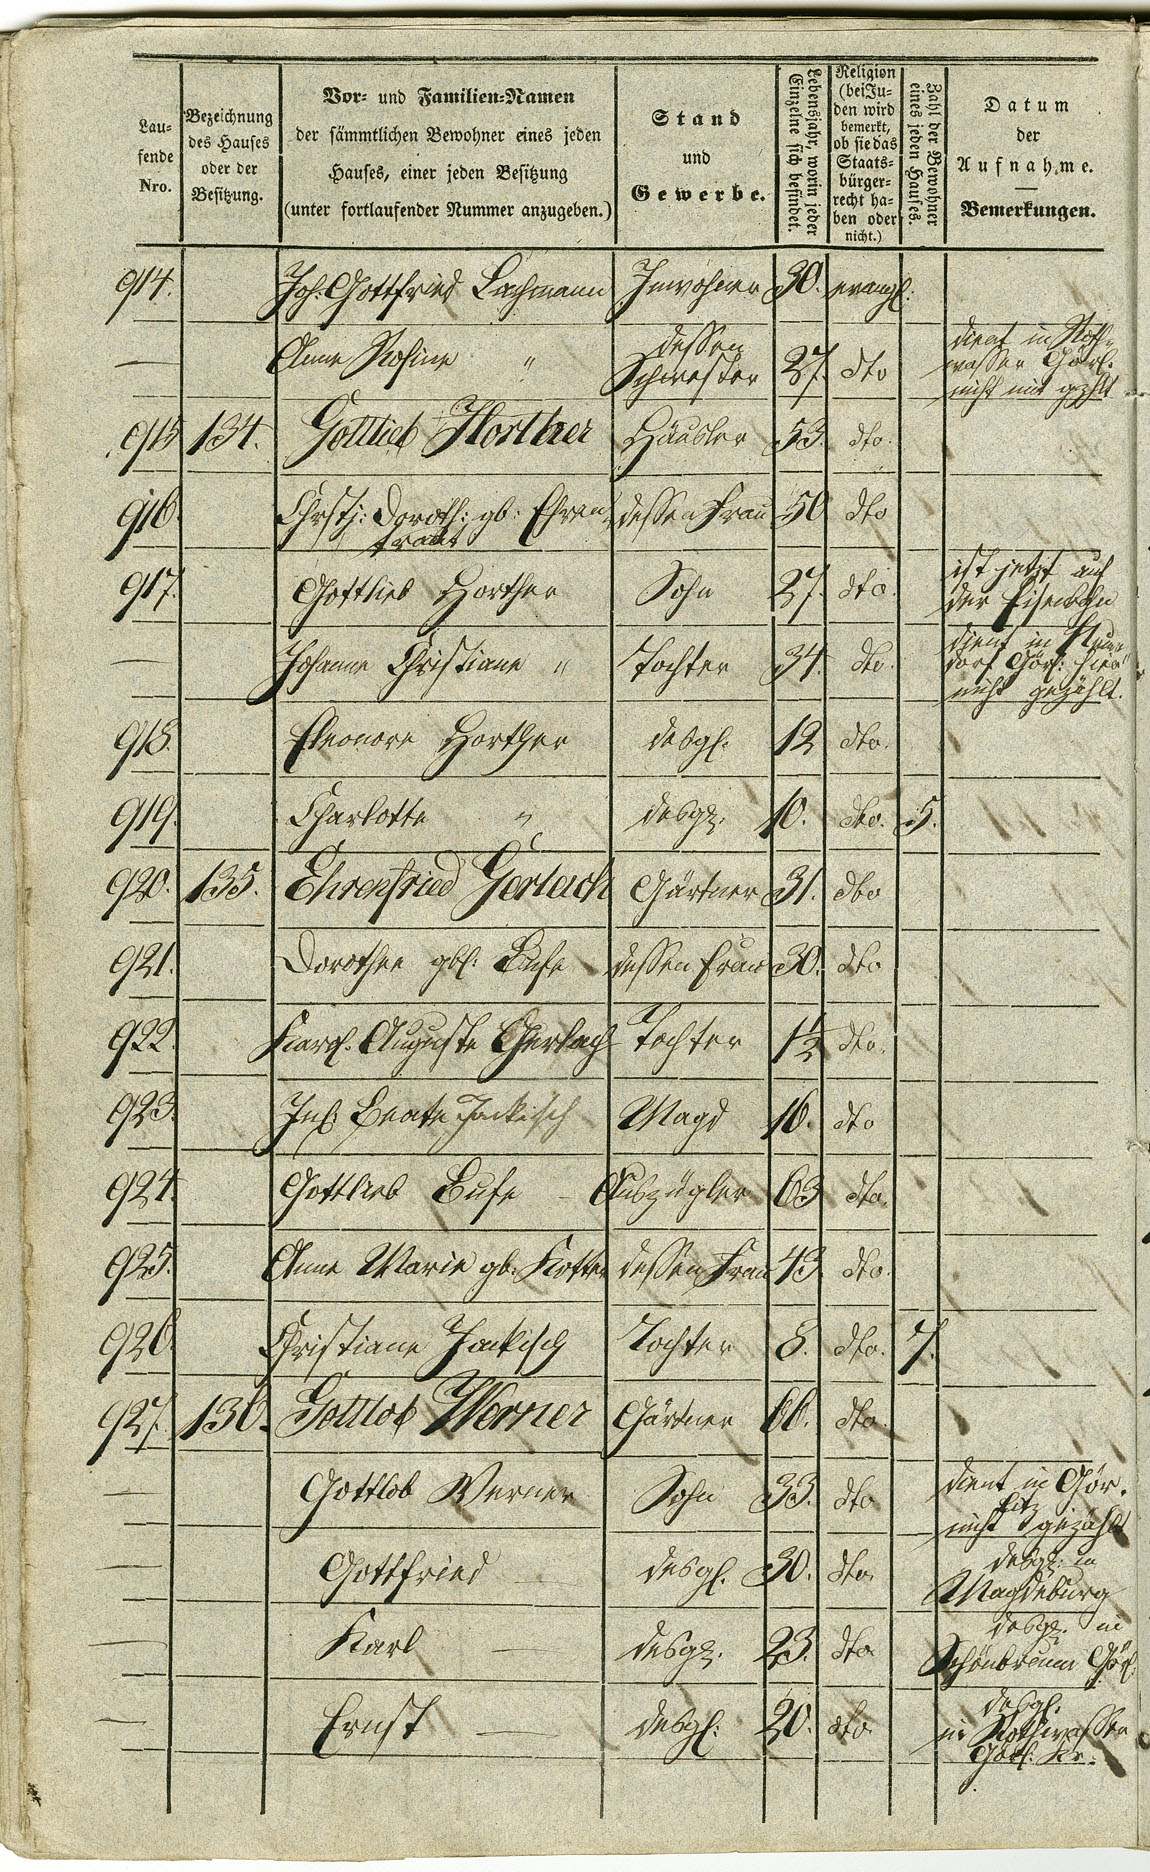 Lau-
fende
Nro.
Bezeichnung
des Hauses
oder der
Besitzung.
Vor- und Familien-Namen
der sämmtlichen Bewohner eines jeden
Hauses, einer jeden Besitzung
(unter fortlaufender Nummer anzugeben.)
Stand
und
Gewerbe.
Lebensjahr, worin jeder
Einzelne sich befindet.
Religion
(bei Ju-
den wird
bemerkt,
ob sie das
Staats-
bürger-
recht ha-
ben oder
nicht.)
Zahl der Bewohner
eines jeden Hauses.
Datum
der
Aufnahme.
Bemerkungen.
914. Joh. Gottfried Lachmann Inwohner 30. evangl.
— Anne Rosine " dessen Schwester 27. dto dient in Roth-
wasser Görl.
nicht mit gezhlt
915 134. Gottlieb Horther Häusler 53. dto.
916. Christ: Doroth: gb: Ehren- dessen Frau 50 dto
traut
917. Gottlieb Horther Sohn 27. dto. ist jetzt auf
der Eisenbahn
— Johanne Christiane " Tochter 34. dto. dient in
dorf Görl: hier
nicht gezählt.
918. Eleonore Horther desgl. 12 dto.
919. Charlotte " desgl. 10. dto. 5.
920. 135. Ehrenfried Gerlach Gärtner 31. dto
921. Dorothee gb: Bufe dessen Frau 30. dto
922. Auguste Gerlach Tochter 1½ dto.
923. Beate Jackisch Magd 16. dto
924. Gottlieb Bufe Auszügler 63 dto.
925. Anne Marie gb: dessen Frau 43. dto.
926. Christiane Jackisch Tochter 8. dto. 7.
927. 136. Gottlob Werner Gärtner 66. dto.
— Gottlob Werner Sohn 33. dto dient in Gör-
litz
nicht gezählt
— Gottfried — desgl. 30. dto. desgl: in
Magdeburg
— Karl — desgl. 23. dto desgl. in
Schönbrunn Görl:
— Ernst — desgl: 20. dto desgl.
in Rothwasser
Görl: Kr.